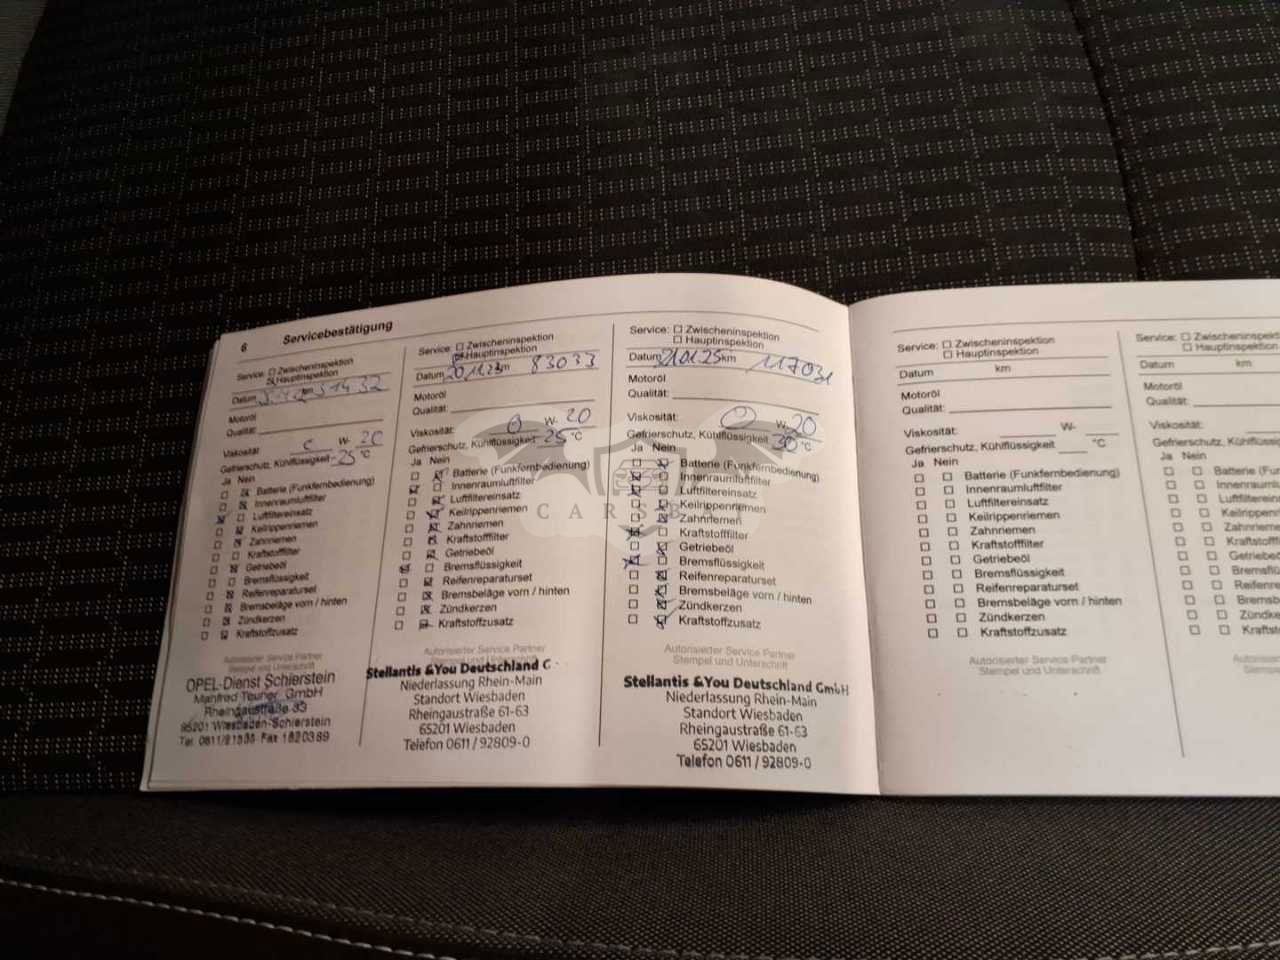 6 Servicebestätigung
Service: Zwischeninspektion
Hauptinspektion
Datum
Motoröl
Qualität:
Viskosität W- 20
Gefrierschutz, Kühlflüssigkeit -25 °C
Ja Nein
Batterie (Funkfernbedienung)
Innenraumluftfilter
Luftfiltereinsatz
Keilrippenriemen
Zahnriemen
Kraftstofffilter
Getriebeöl
Bremsflüssigkeit
Reifenreparaturset
Bremsbeläge vorn / hinten
Zündkerzen
Kraftstoffzusatz
Autorisierter Service Partner
Stempel und Unterschrift
OPEL-Dienst Schierstein
Manfred GmbH
Rheingaustraße 83
65201 Wiesbaden-Schierstein
Service: Zwischeninspektion
Hauptinspektion
Datum 20.11.23 km 83033
Motoröl
Qualität:
Viskosität: 0 W- 20
Gefrierschutz, Kühlflüssigkeit -25 °C
Ja Nein
Batterie (Funkfernbedienung)
Innenraumluftfilter
Luftfiltereinsatz
Keilrippenriemen
Zahnriemen
Kraftstofffilter
Getriebeöl
Bremsflüssigkeit
Reifenreparaturset
Bremsbeläge vorn / hinten
Zündkerzen
Kraftstoffzusatz
Autorisierter Service Partner
Stellantis &You Deutschland G
Niederlassung Rhein-Main
Standort Wiesbaden
Rheingaustraße 61-63
65201 Wiesbaden
Telefon 0611 / 92809-0
Service: Zwischeninspektion
Hauptinspektion
Datum 21.01.25 km 117031
Motoröl
Qualität:
Viskosität: 0 W- 20
Gefrierschutz, Kühlflüssigkeit 30 °C
Ja Nein
Batterie (Funkfernbedienung)
Innenraumluftfilter
Luftfiltereinsatz
Keilrippenriemen
Zahnriemen
Kraftstofffilter
Getriebeöl
Bremsflüssigkeit
Reifenreparaturset
Bremsbeläge vorn / hinten
Zündkerzen
Kraftstoffzusatz
Autorisierter Service Partner
Stempel und Unterschrift
Stellantis &You Deutschland GmbH
Niederlassung Rhein-Main
Standort Wiesbaden
Rheingaustraße 61-63
65201 Wiesbaden
Telefon 0611 / 92809-0
Service: Zwischeninspektion
Hauptinspektion
Datum km
Motoröl
Qualität:
Viskosität: W-
Gefrierschutz, Kühlflüssigkeit °C
Ja Nein
Batterie (Funkfernbedienung)
Innenraumluftfilter
Luftfiltereinsatz
Keilrippenriemen
Zahnriemen
Kraftstofffilter
Getriebeöl
Bremsflüssigkeit
Reifenreparaturset
Bremsbeläge vorn / hinten
Zündkerzen
Kraftstoffzusatz
Autorisierter Service Partner
Stempel und Unterschrift
Service: Zwischeninspektion
Hauptinspektion
Datum km
Motoröl
Qualität:
Viskosität:
Gefrierschutz, Kühlflüssigkeit
Ja Nein
Batterie (Fun
Innenraumluf
Luftfiltereins
Keilrippenrie
Zahnriemen
Kraftstofffi
Getriebeö
Bremsflüs
Reifenrep
Bremsb
Zündke
Kraftst
Autorisierter
Stempel